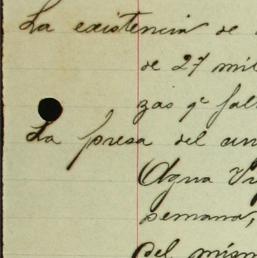 La existencia de
de 27 mil
zas qe fal
La presa del
Agua
semana,
del mism